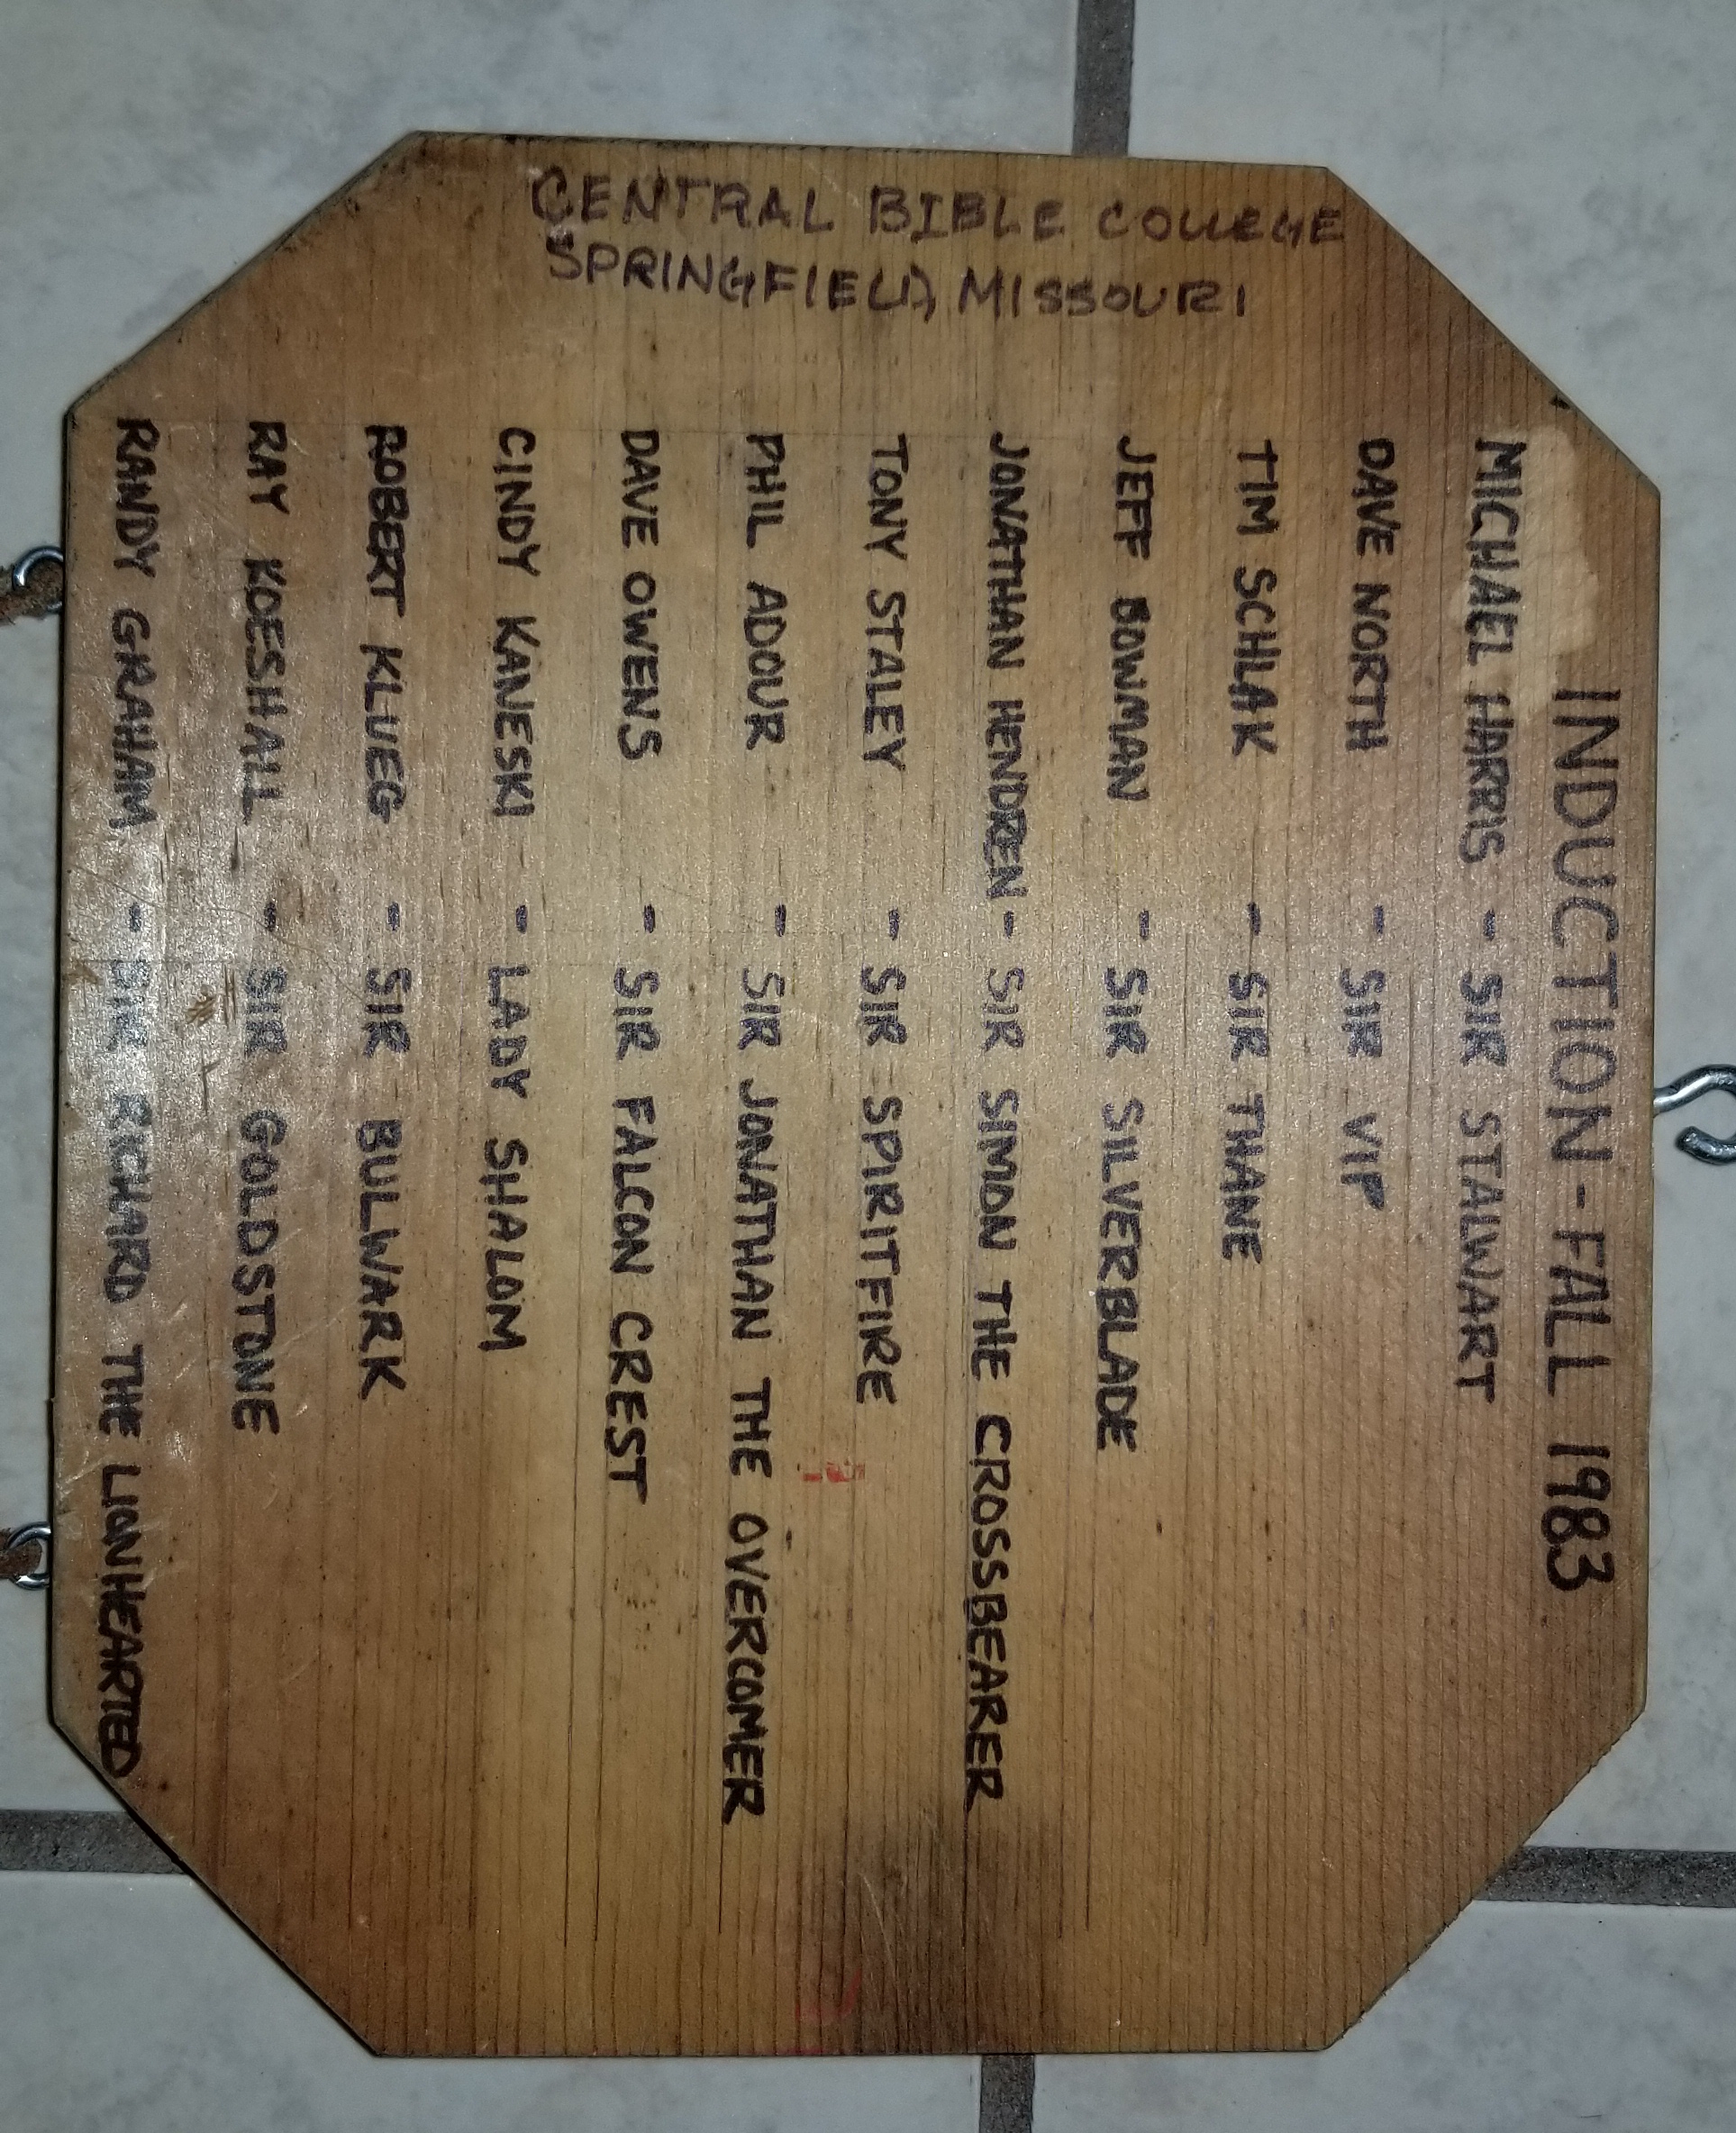 CENTRAL BIBLE COLLEGE
SPRINGFIELD, MISSOURI
INDUCTION - FALL 1983
MICHAEL HARRIS - SIR STALWART
DAVE NORTH - SIR VIP
TIM SCHLAK - SIR THANE
JEFF BOWMAN - SIR SILVERBLADE
JONATHAN HENDREN - SIR SIMON THE CROSSBEARER
TONY STALEY - SIR SPIRITFIRE
PHIL ADOUR - SIR JONATHAN THE OVERCOMER
DAVE OWENS - SIR FALCON CREST
CINDY KANESKI - LADY SHALOM
ROBERT KLUEG - SIR BULWARK
RAY KOESHALL - SIR GOLDSTONE
RANDY GRAHAM - SIR RICHARD THE LIONHEARTED